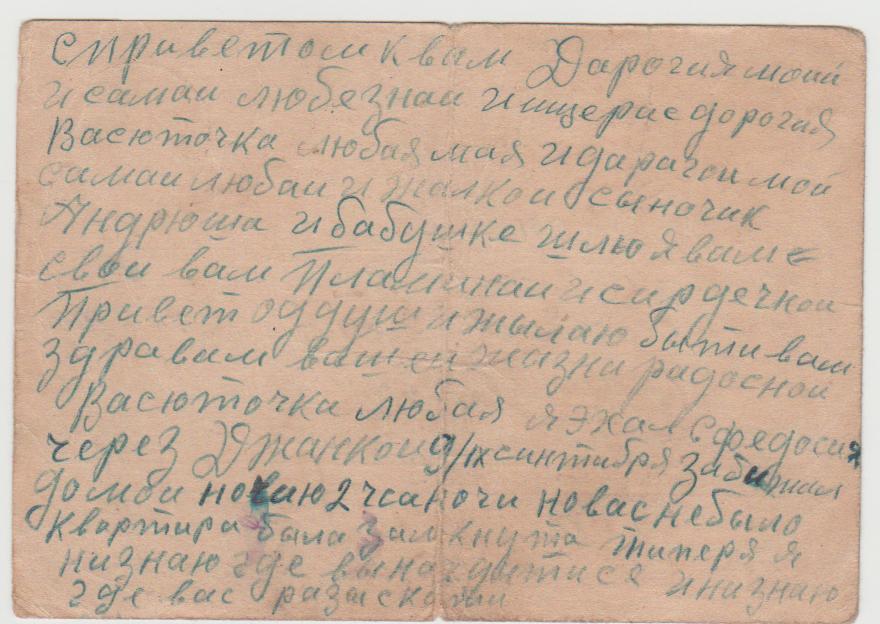 с приветом к вам Дарогия мои
и самаи любезнаи и ище рас дорогия
Васюточка любая мая и дарагои мои
самаи любаи и жалкои сыночик
Андрюша и бабушке шлю я вам
свои вам пламинаи и сирдечнои
Привет од душ и жылаю быти вам
здравам вашеи жизни радоснои
Васюточка любая я эхал с Федосия
через Джанкои 9/IX синтября забижал
домои ночию 2 часа ночи но вас небыло
квартира была замкнута типеря я
низнаю где вы находитися и низнаю
где вас разыскати